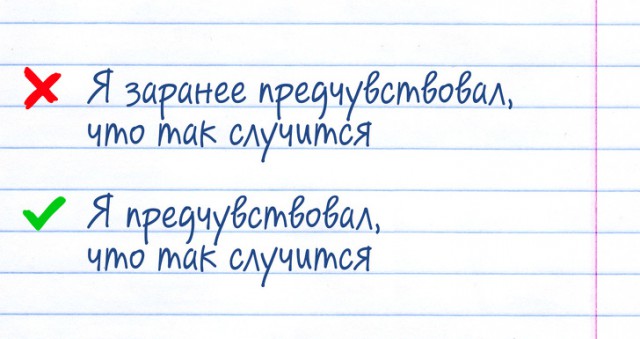 Я заранее предчувствовал,
что так случится
Я предчувствовал,
что так случится